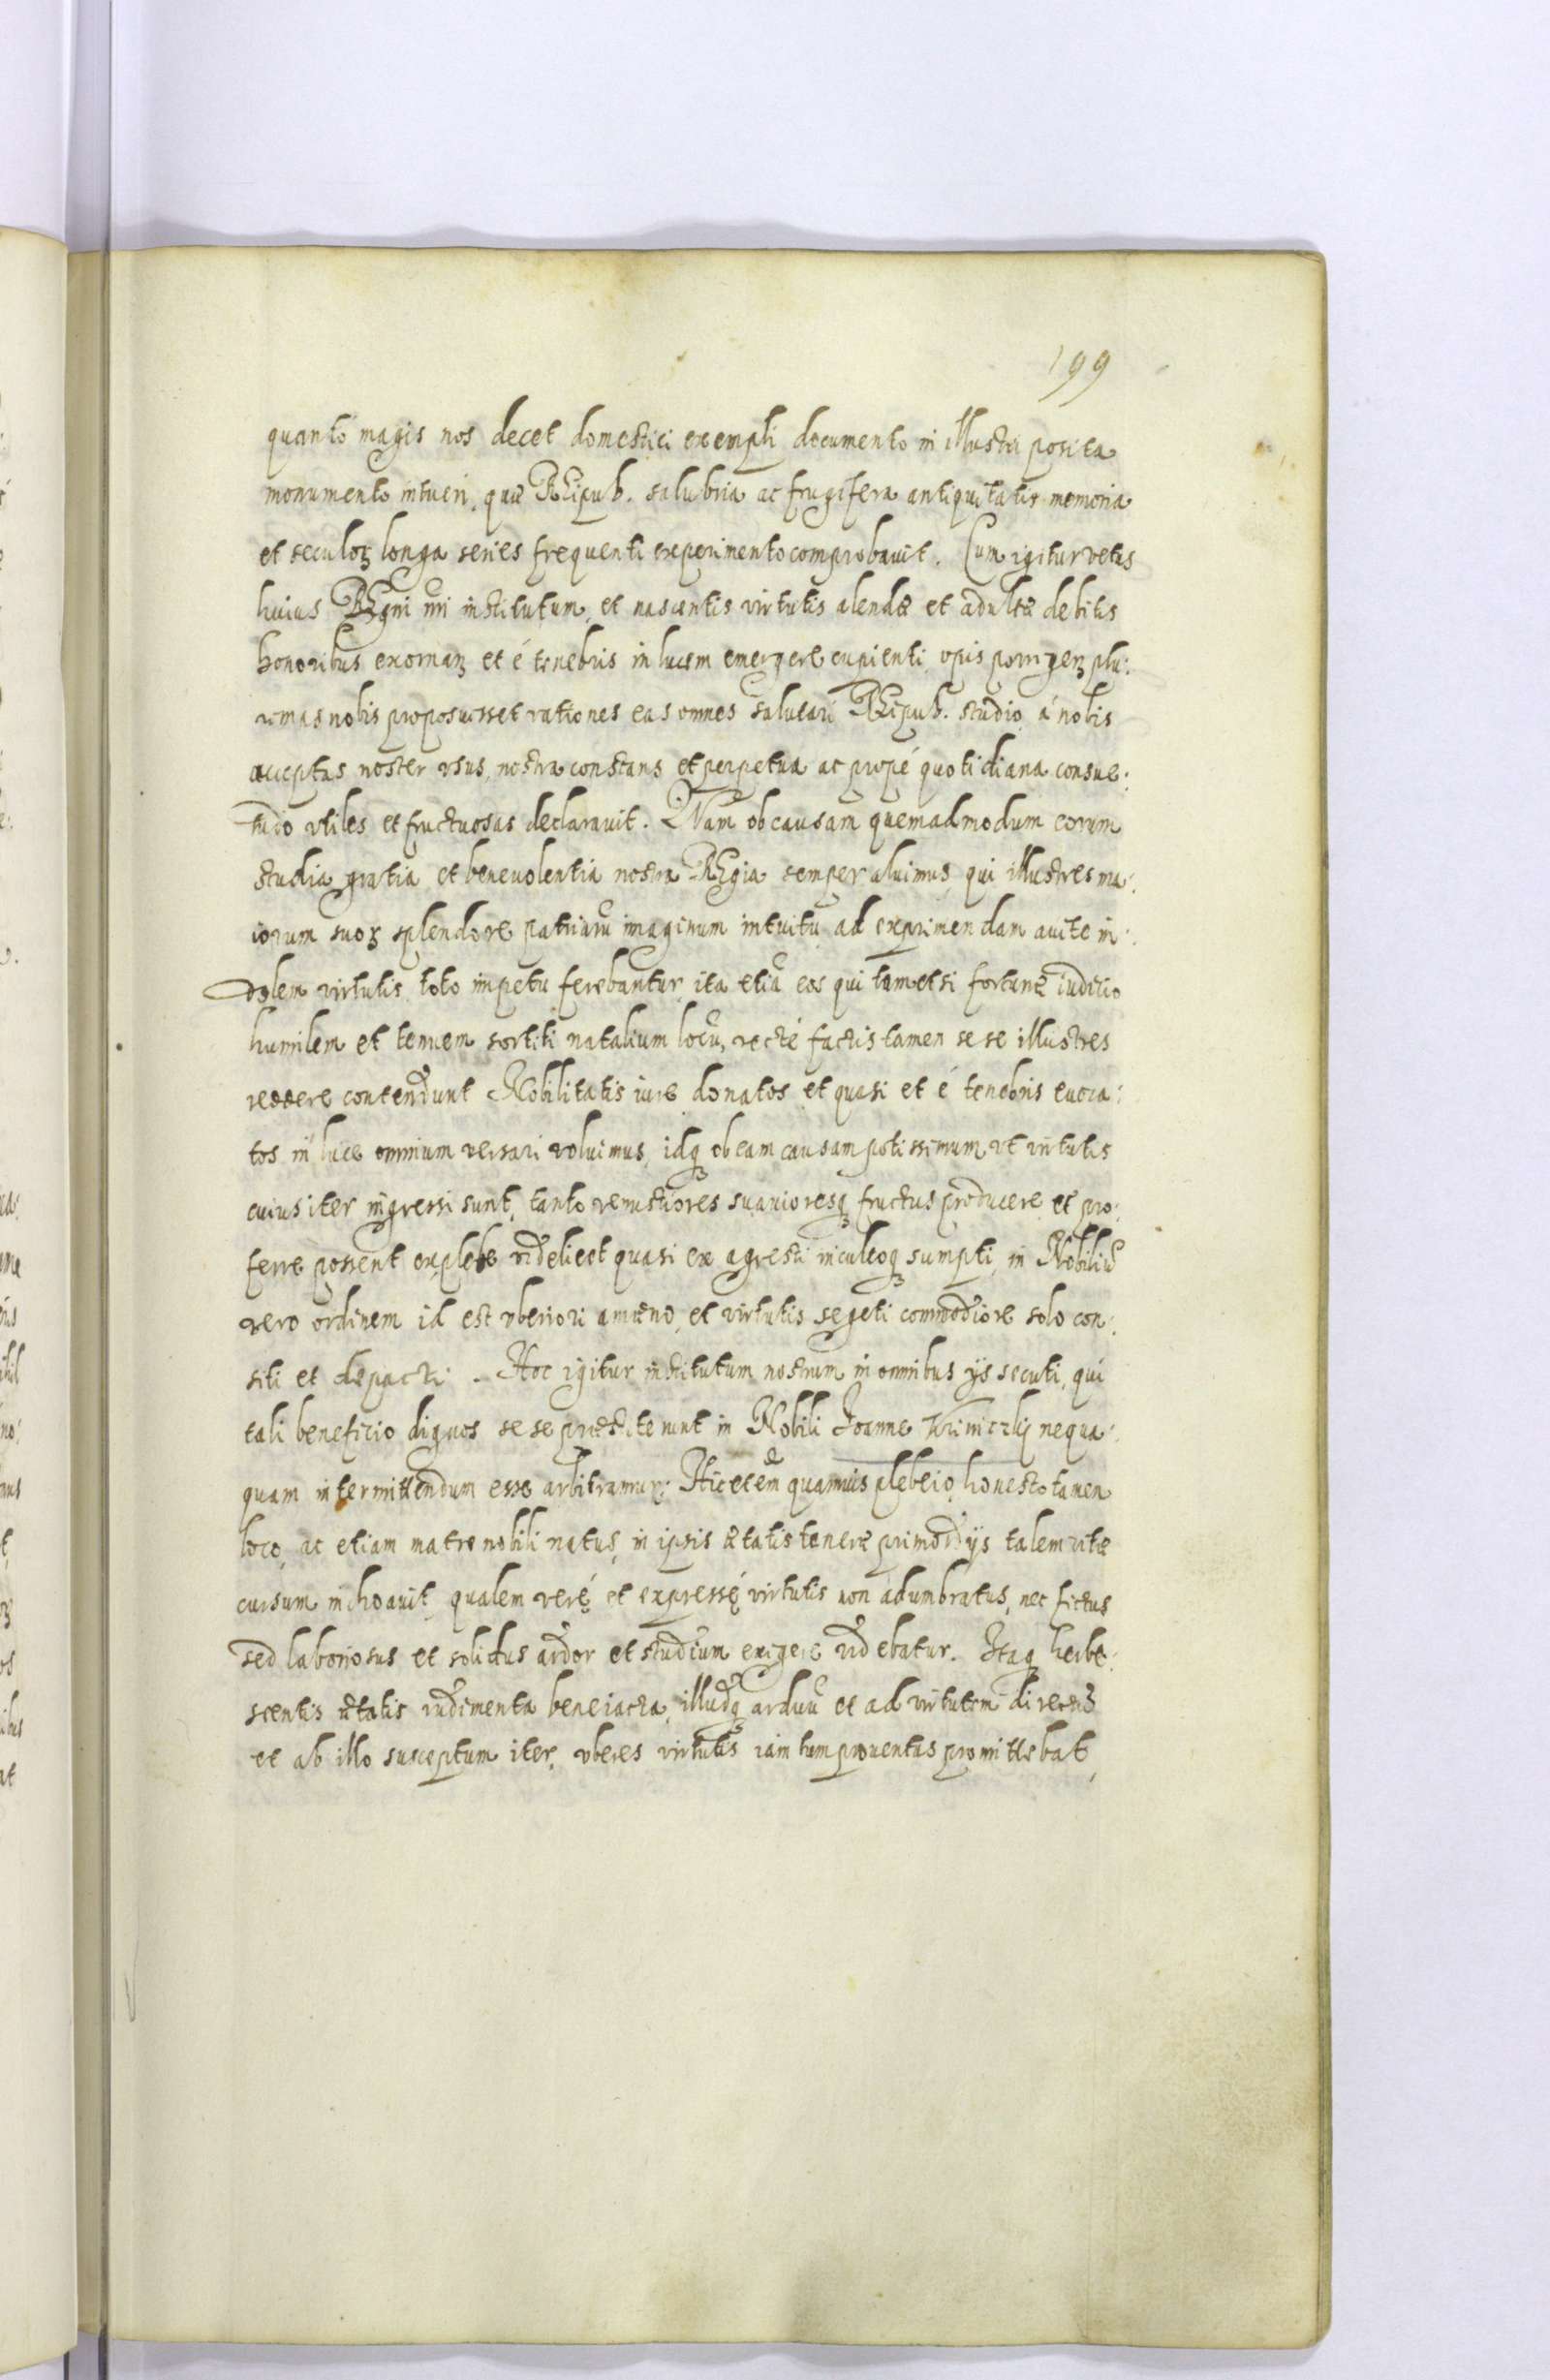 199
quanto magis nos decet domestici exempli documento in illustri posita
monumento intueri, quæ REipub. salubria ac frugifera antiquitatis memoria
et seculoꝝ longa series frequenti experimento comprobauit. Cum igitur vetus
huius REgni nri institutum, et nascentis virtutis alendæ et adultæ debitis
honoribus exornanꝫ et é tenebris in lucem emergere cupienti opis porrigenꝫ plu:
rimas nobis proposuisset rationes eas omnes salutari REipub. studio á nobis
acceptas noster vsus, nostra constans et perpetua ac propé quotidiana consue:
tudo vtiles et fructuosas declarauit. Nam ob causam quemadmodum eorum
studia gratia et beneuolentia nostra REgia semper aluimus, qui illustres ma:
iorum suoꝝ splendore patriarũ imaginum intuitu ad exprimendam auite in:
dolem virtutis toto impetu ferebantur, ita etiã eos qui tametsi fortunæ iuditio
humilem et tenuem sortiti natalium locũ, recté factis tamen se se illustres
reddere contendunt Nobilitatis iure donatos et quasi et é tenebris euoca:
tos in luce omnium versari voluimus, idqꝫ ob eam causam potissimum vt virtutis
cuius iter ingressi sunt, tanto venustiores suauioresqꝫ fructus producere et pro:
ferre possent ex plebe videlicet quasi ex agresti incultoqꝫ sumpti, in Nobiliũ
vero ordinem id est vberiori amæno, et virtutis segeti commodiore solo con:
siti et depacti. Hoc igitur institutum nostrum in omnibus ijs secuti, qui
tali beneficio dignos se se præstiterunt in Nobili Joanne nequa:
quam intermittendum esse arbitramur: Hic etem quamuis plebeio, honesto tamen
loco, ac etiam matre nobili natus, in ipsis ætatis teneræ primordijs talem vitæ
cursum inchoauit, qualem veré et expressé virtutis non adumbratus, nec fictus
sed laboriosus et solidus ardor et studium exigere videbatur. Itaqꝫ herbe:
scentis ætatis rudimenta bene iacta, illudqꝫ arduũ et ad virtutem directũ
et ab illo susceptum iter, vberes virtutis iam tum prouentus promittebat,